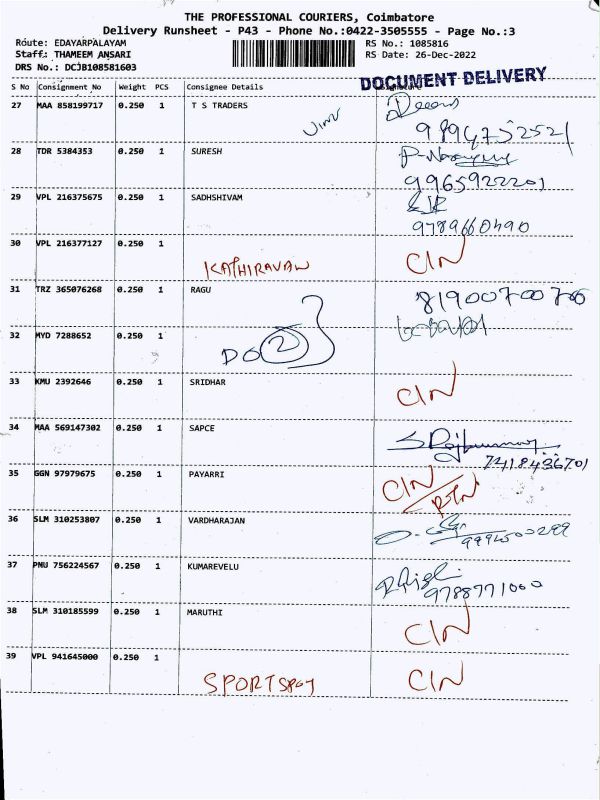 THE PROFESSIONAL COURIERS, Coimbatore
Delivery Runsheet - P43 - Phone No.:0422-3505555 - Page No.:3
Route: EDAYARPALAYAM RS No.: 1085816
Staff: THAMEEM ANSARI RS Date: 26-Dec-2022
DRS No.: DCJB108581603
DOCUMENT DELIVERY
S No Consignment No Weight PCS Consignee Details
27 MAA 858199717 0.250 1 T S TRADERS
9894752521
28 TDR 5384353 0.250 1 SURESH
9965922201
29 VPL 216375675 0.250 1 SADHSHIVAM
9789660490
30 VPL 216377127 0.250 1
KATHIRAVAN CIN
31 TRZ 365076268 0.250 1 RAGU
8190070070
32 MYD 7288652 0.250 1
DO 2
33 KMU 2392646 0.250 1 SRIDHAR CIN
34 MAA 569147302 0.250 1 SAPCE
7418436701
35 GGN 97979675 0.250 1 PAYARRI CIN
RTN
36 SLM 310253807 0.250 1 VARDHARAJAN
37 PNU 756224567 0.250 1 KUMAREVELU
9788771000
38 SLM 310185599 0.250 1 MARUTHI CIN
39 VPL 941645000 0.250 1
SPORTSPOT CIN